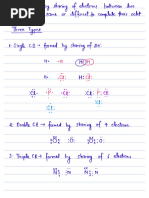 by sharing of electrons between two
same or different to complete their octet
Three Types
1. Single CB → formed by sharing of 2e⁻
H· ·H H H
:Cl· ·Cl: :Cl:Cl:
2. Double CB → formed by sharing of 4 electrons
:O: :O: :O::O:
3. Triple CB → formed by sharing of 6 electrons
:N: :N: :N:::N: